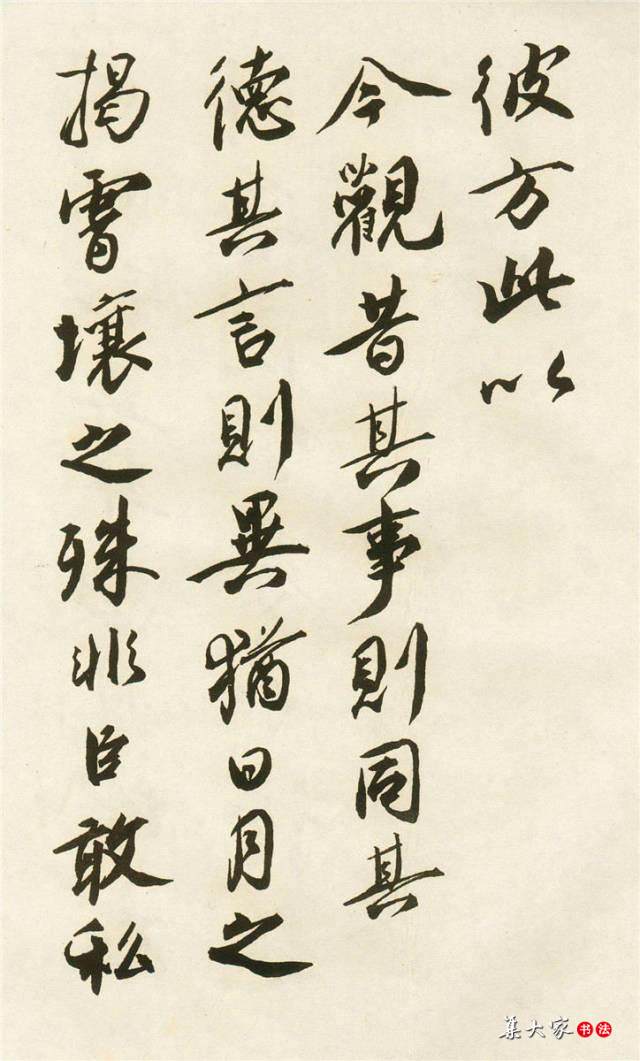 彼方此以
今觀昔其事則同其
德其言則異猶日月之
揭霄壤之殊非臣敢私
集大家书法